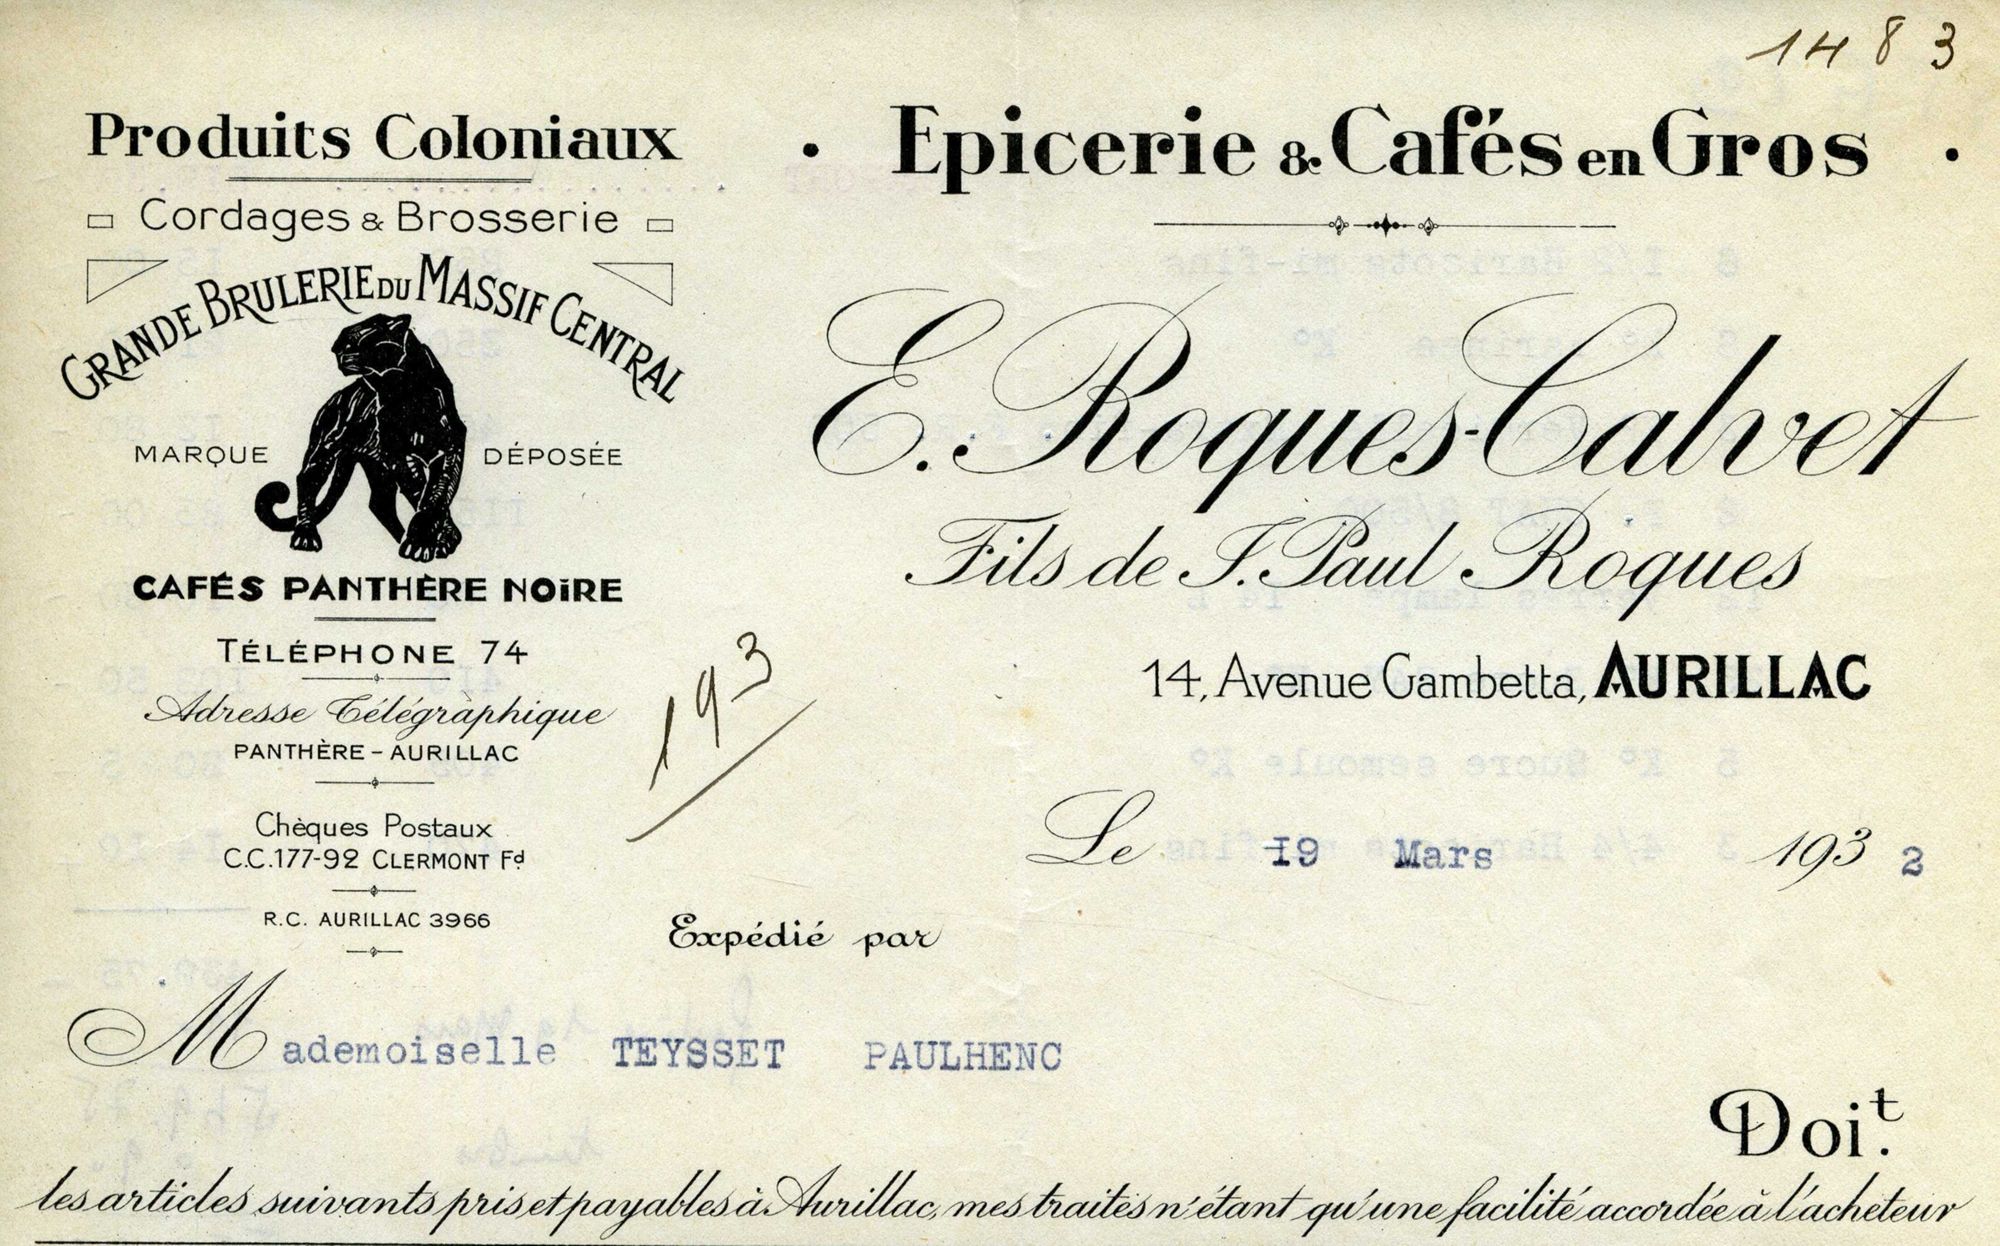 1483
Produits Coloniaux
Cordages & Brosserie
GRANDE BRULERIE DU MASSIF CENTRAL
MARQUE DÉPOSÉE
CAFÉS PANTHÈRE NOiRE
TÉLÉPHONE 74
Adresse Télégràphique
PANTHÈRE - AURILLAC
Chèques Postaux
C.C. 177-92 CLERMONT Fd
R.C. AURILLAC 3966
193
• Epicerie & Cafés en Gros •
E. Roques-Calvet
Fils de J. Paul Roques
14, Avenue Gambetta, AURILLAC
Le 19 Mars 1932
Expédié par
Mademoiselle TEYSSET PAULHENC
Doit.
les articles suivants pris et payables à Aurillac, mes traites n'étant qu'une facilité accordée à l'acheteur